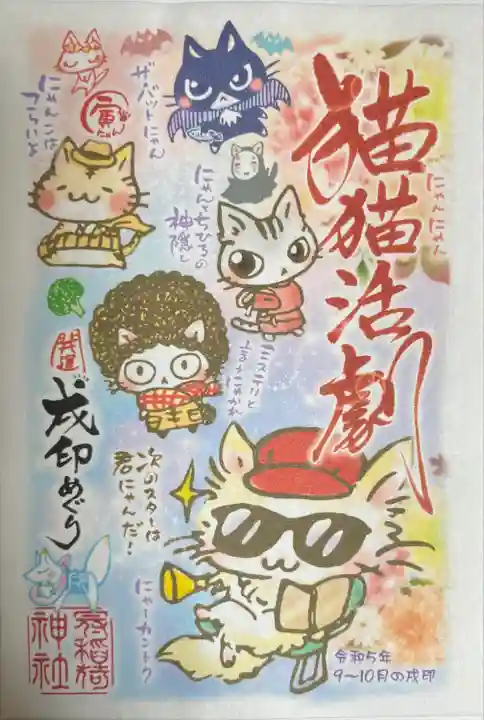 猫猫活劇
にゃんにゃん
ザ・バットにゃん
寅にゃん
にゃんこは
つらいよ
にゃんとちひろの
神隠し
ミステリと
次のスターは
君にゃんだ！
にゃーカントク
開運
戌印めぐり
稲荷
神社
令和5年
9〜10月の戌印